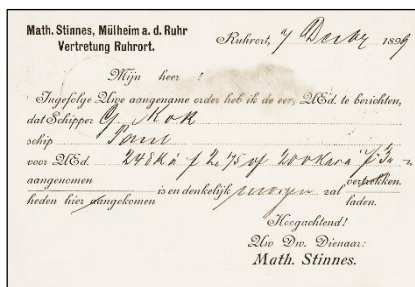 Math. Stinnes, Mülheim a. d. Ruhr
Vertretung Ruhrort.
Ruhrort, 7 1899
Mijn heer !
Ingefolge Uwe aangename order heb ik de eer, UEd. te berichten,
dat Schipper G. Mok
schip
voor UEd. 248 K á f 2,75 of 200 á f
aangenomen vertrokken.
is en denkelijk morgen zal
heden hier aangekomen laden.
Hoogachtend!
Uw Dw. Dienaar:
Math. Stinnes.